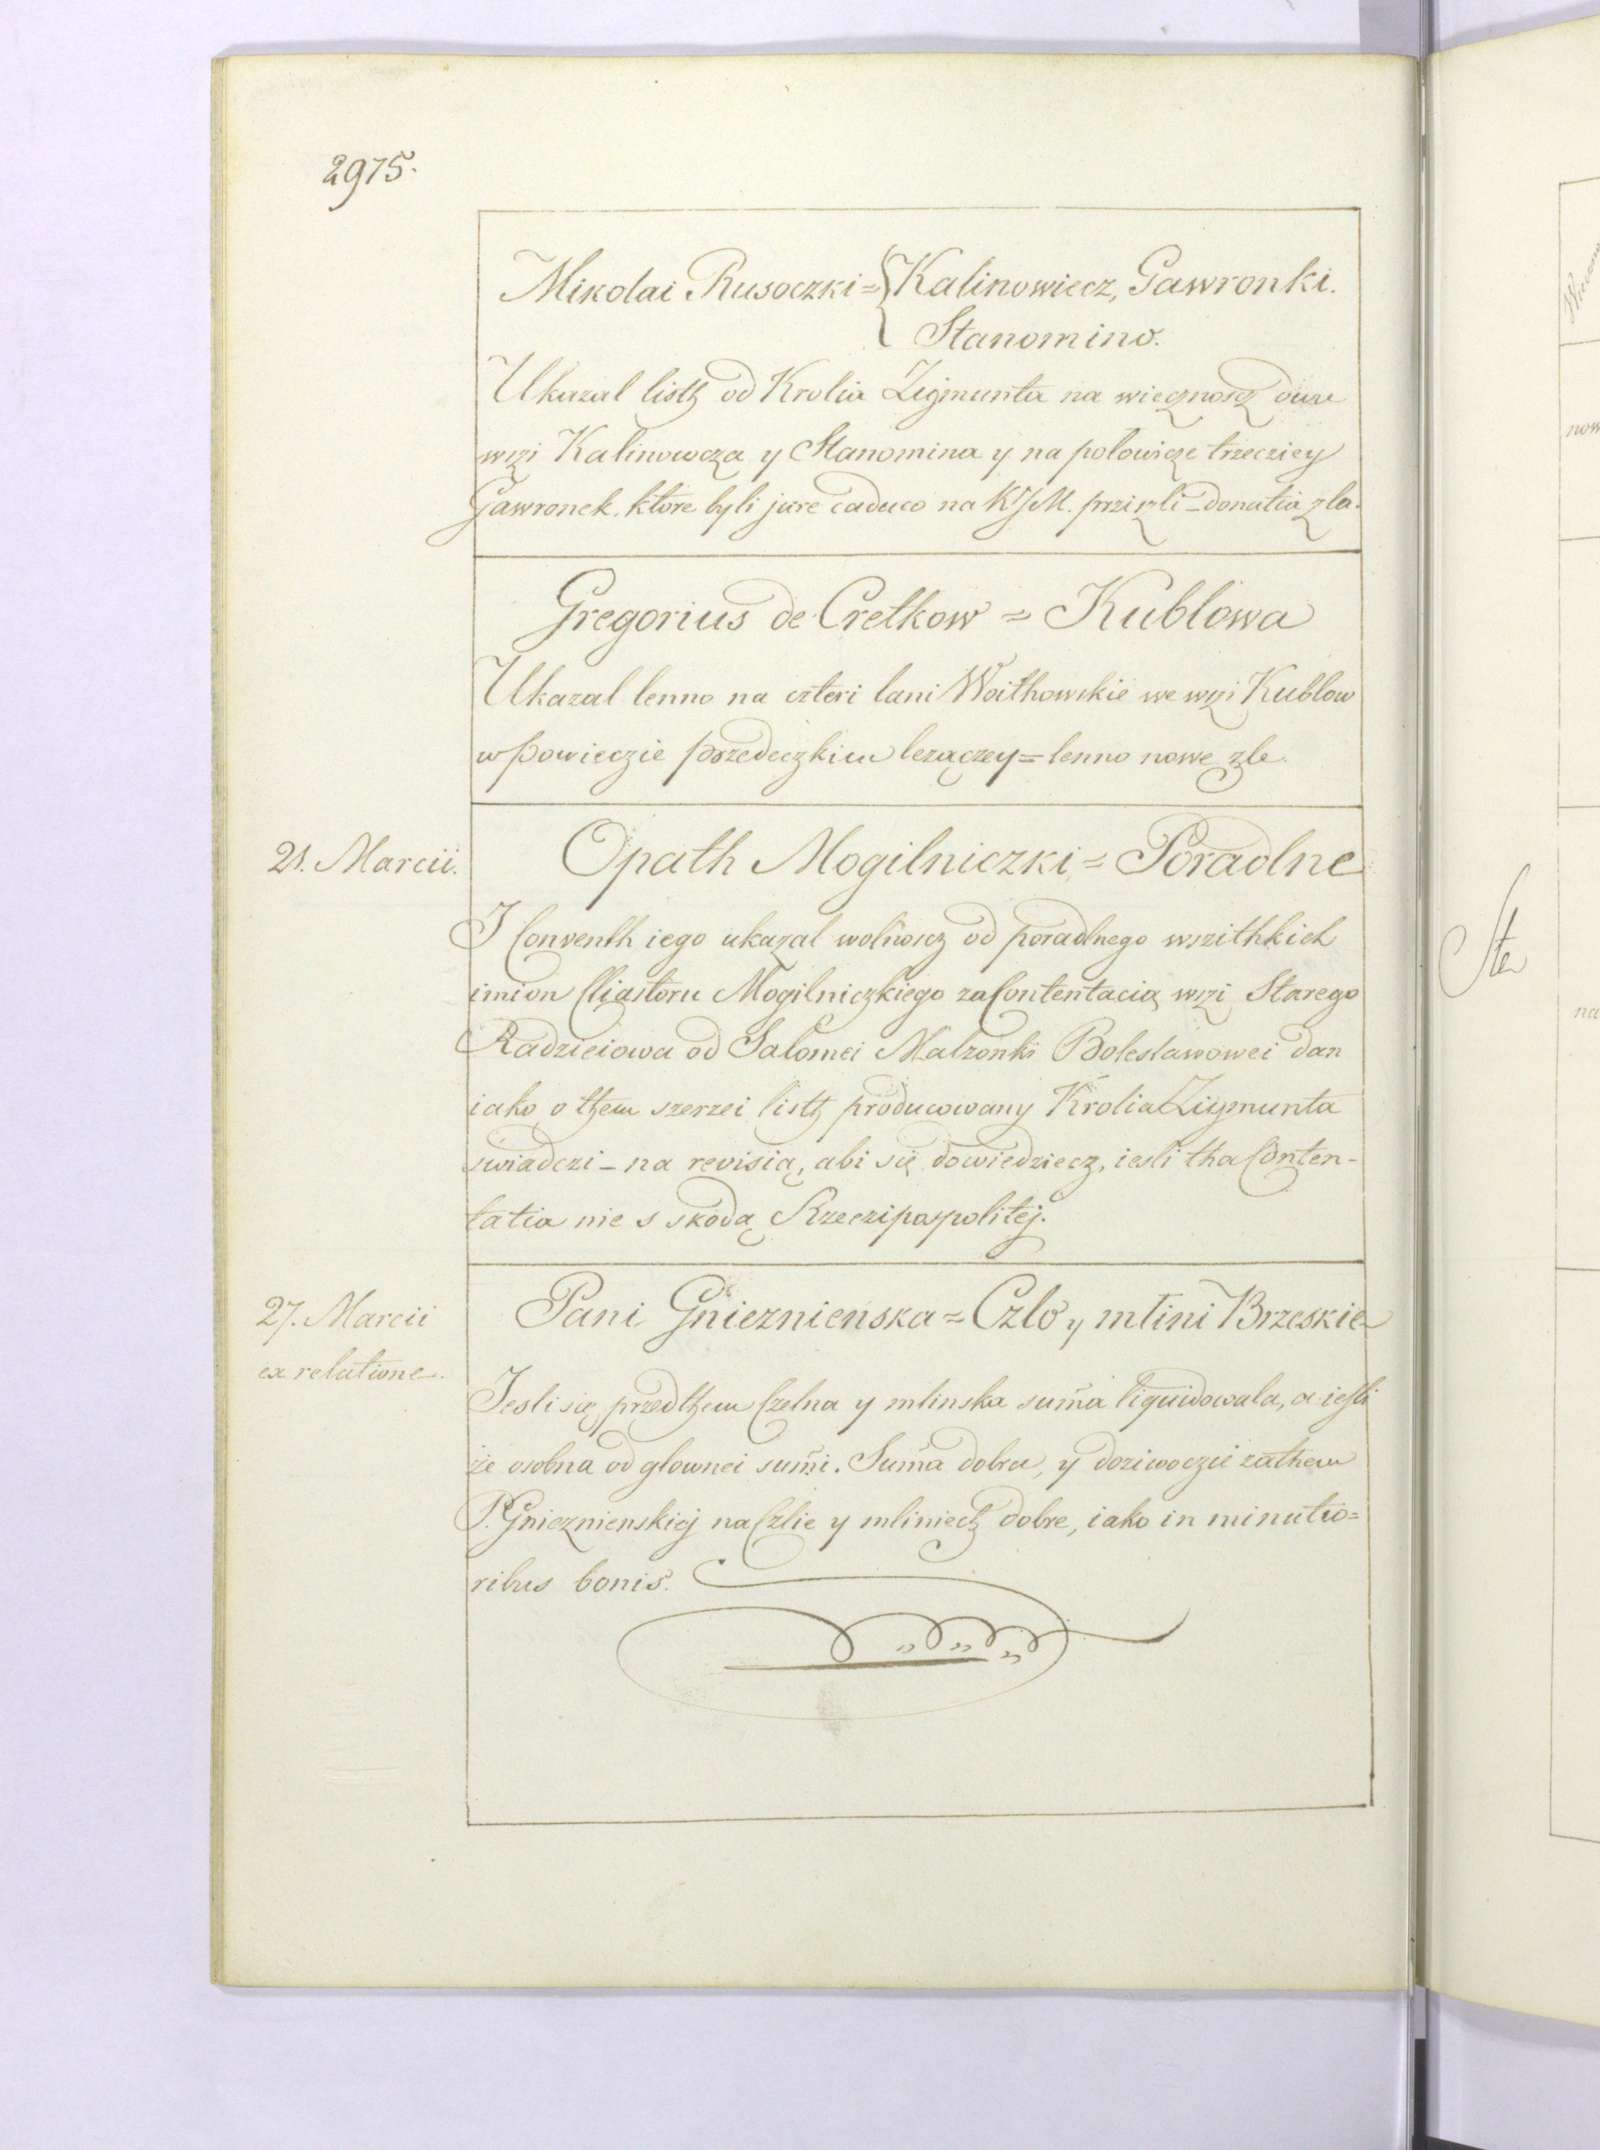 2975.
Mikolai Rusoczki = { Kalinowiecz, Gawronki.
Stanomino.
Ukazal listh od Krolia Zigmunta na wiecznoscz dwu
wzi Kalinowcza y Stanomina y na polowicze trzecziey
Gawronek, ktore byli jure caduco na KJM. przizli – donatia zla.
Gregorius de Cretkow = Kublowa
Ukazal lenno na czteri lani Woithowskie we wzi Kublow
w powieczie przedeczkim lezączey = lenno nowe zle.
21. Marcii.
Opath Mogilniczki = Poradlne
I Conventh iego ukazal wolnoscz od poradlnego wszithkich
imion Cliastoru Mogilniczkiego za Contentacią wzi Starego
Radzieiowa od Salomei Malzonki Boleslawowei dan
iako o them szerzei listh producowany Krolia Zigmunta
swiadczi – na revisią, abi się dowiedziecz, iesli tha Conten-
tatia nie s skodą Rzeczipospolitej.
27. Marcii
ex relatione.
Pani Gnieznienska = Czlo y mlini Brzeskie
Iesli się przedthem Czelna y mlinska suma liquidowala, a iesli
że osobna od glownei sumi. Suma dobra, y doziwoczie zathem
P. Gnieznienskiej na Czlie y mliniech dobre, iako in minutio=
ribus bonis.
Ste
now
na